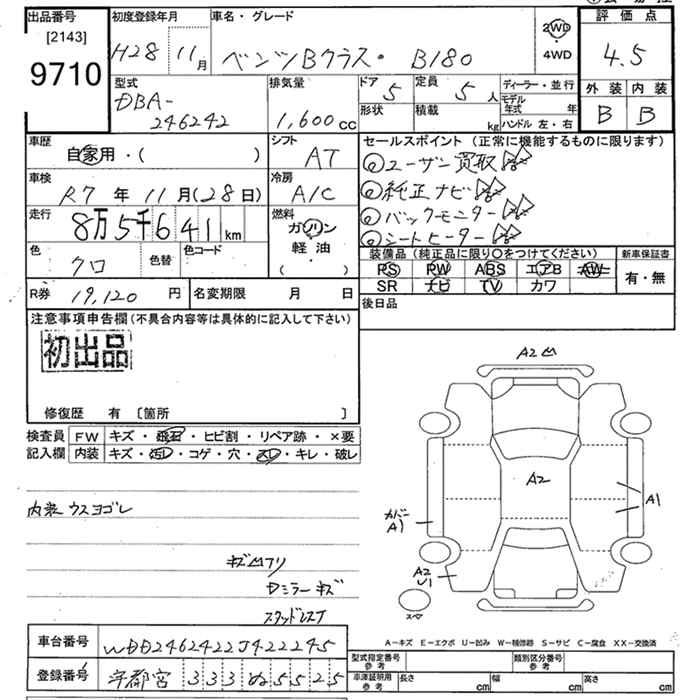 出品番号 初度登録年月 車名・グレード 2WD ・ 4WD 評価点
[2143]
9710 H28 11月 ベンツBクラス・ B180 4.5
型式 排気量 ドア 5 定員 5人 ディーラー・並行 外装 内装
DBA-246242 1,600cc 形状 積載 kg モデル年式 年 B B
ハンドル 左・右
車歴 自家用・( ) シフト AT
セールスポイント (正常に機能するものに限ります)
車検 R7年11月(28日) 冷房 A/C
ユーザー買取
純正ナビ
バックモニター
シートヒーター
走行 8万5千641km 燃料 ガソリン 軽油 ( )
色 クロ 色替 色コード
装備品 (純正品に限り○をつけてください) 新車保証書
PS PW ABS エアB AW 有・無
SR ナビ TV カワ
R券 19,120円 名変期限 月 日
後日品
注意事項申告欄 (不具合内容等は具体的に記入して下さい)
初出品
修復歴 有 [箇所 ]
検査員 FW キズ・飛石・ヒビ割・リペア跡・×要
記入欄 内装 キズ・汚レ・コゲ・穴・スレ・キレ・破レ
内装 ウスヨゴレ
キズ凹アリ
ミラーキズ
A2凹
A2
A1
カバー A1
A2 U1
スペア
A-キズ E-エクボ U-凹み W-補修跡 S-サビ C-腐食 XX-交換済
車台番号 WDD2462422J422245
登録番号 宇都宮 333 ぬ 5525
型式指定番号 参考 類別区分番号 参考
車庫証明用 参考 長さ cm 幅 cm 高さ cm